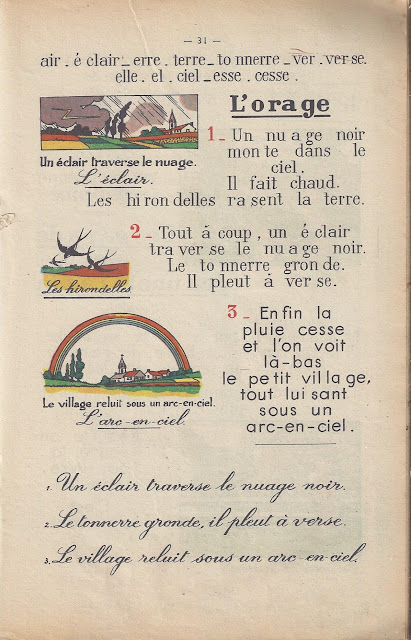 — 31 —
air . é clair _ erre . terre _ to nnerre _ ver . ver se.
elle . el . ciel _ esse . cesse .
L'orage
Un éclair traverse le nuage.
L'éclair.
1 _ Un nu a ge noir
mon te dans le
ciel .
Il fait chaud.
Les hi ron delles ra sent la terre.
Les hirondelles
2 _ Tout à coup , un é clair
tra ver se le nu a ge noir.
Le to nnerre gron de.
Il pleut à ver se.
Le village reluit sous un arc-en-ciel.
L'arc-en-ciel.
3 _ En fin la
pluie cesse
et l'on voit
là-bas
le pe tit vil la ge,
tout lui sant
sous un
arc-en-ciel .
1. Un éclair traverse le nuage noir.
2. Le tonnerre gronde, il pleut à verse.
3. Le village reluit sous un arc-en-ciel.